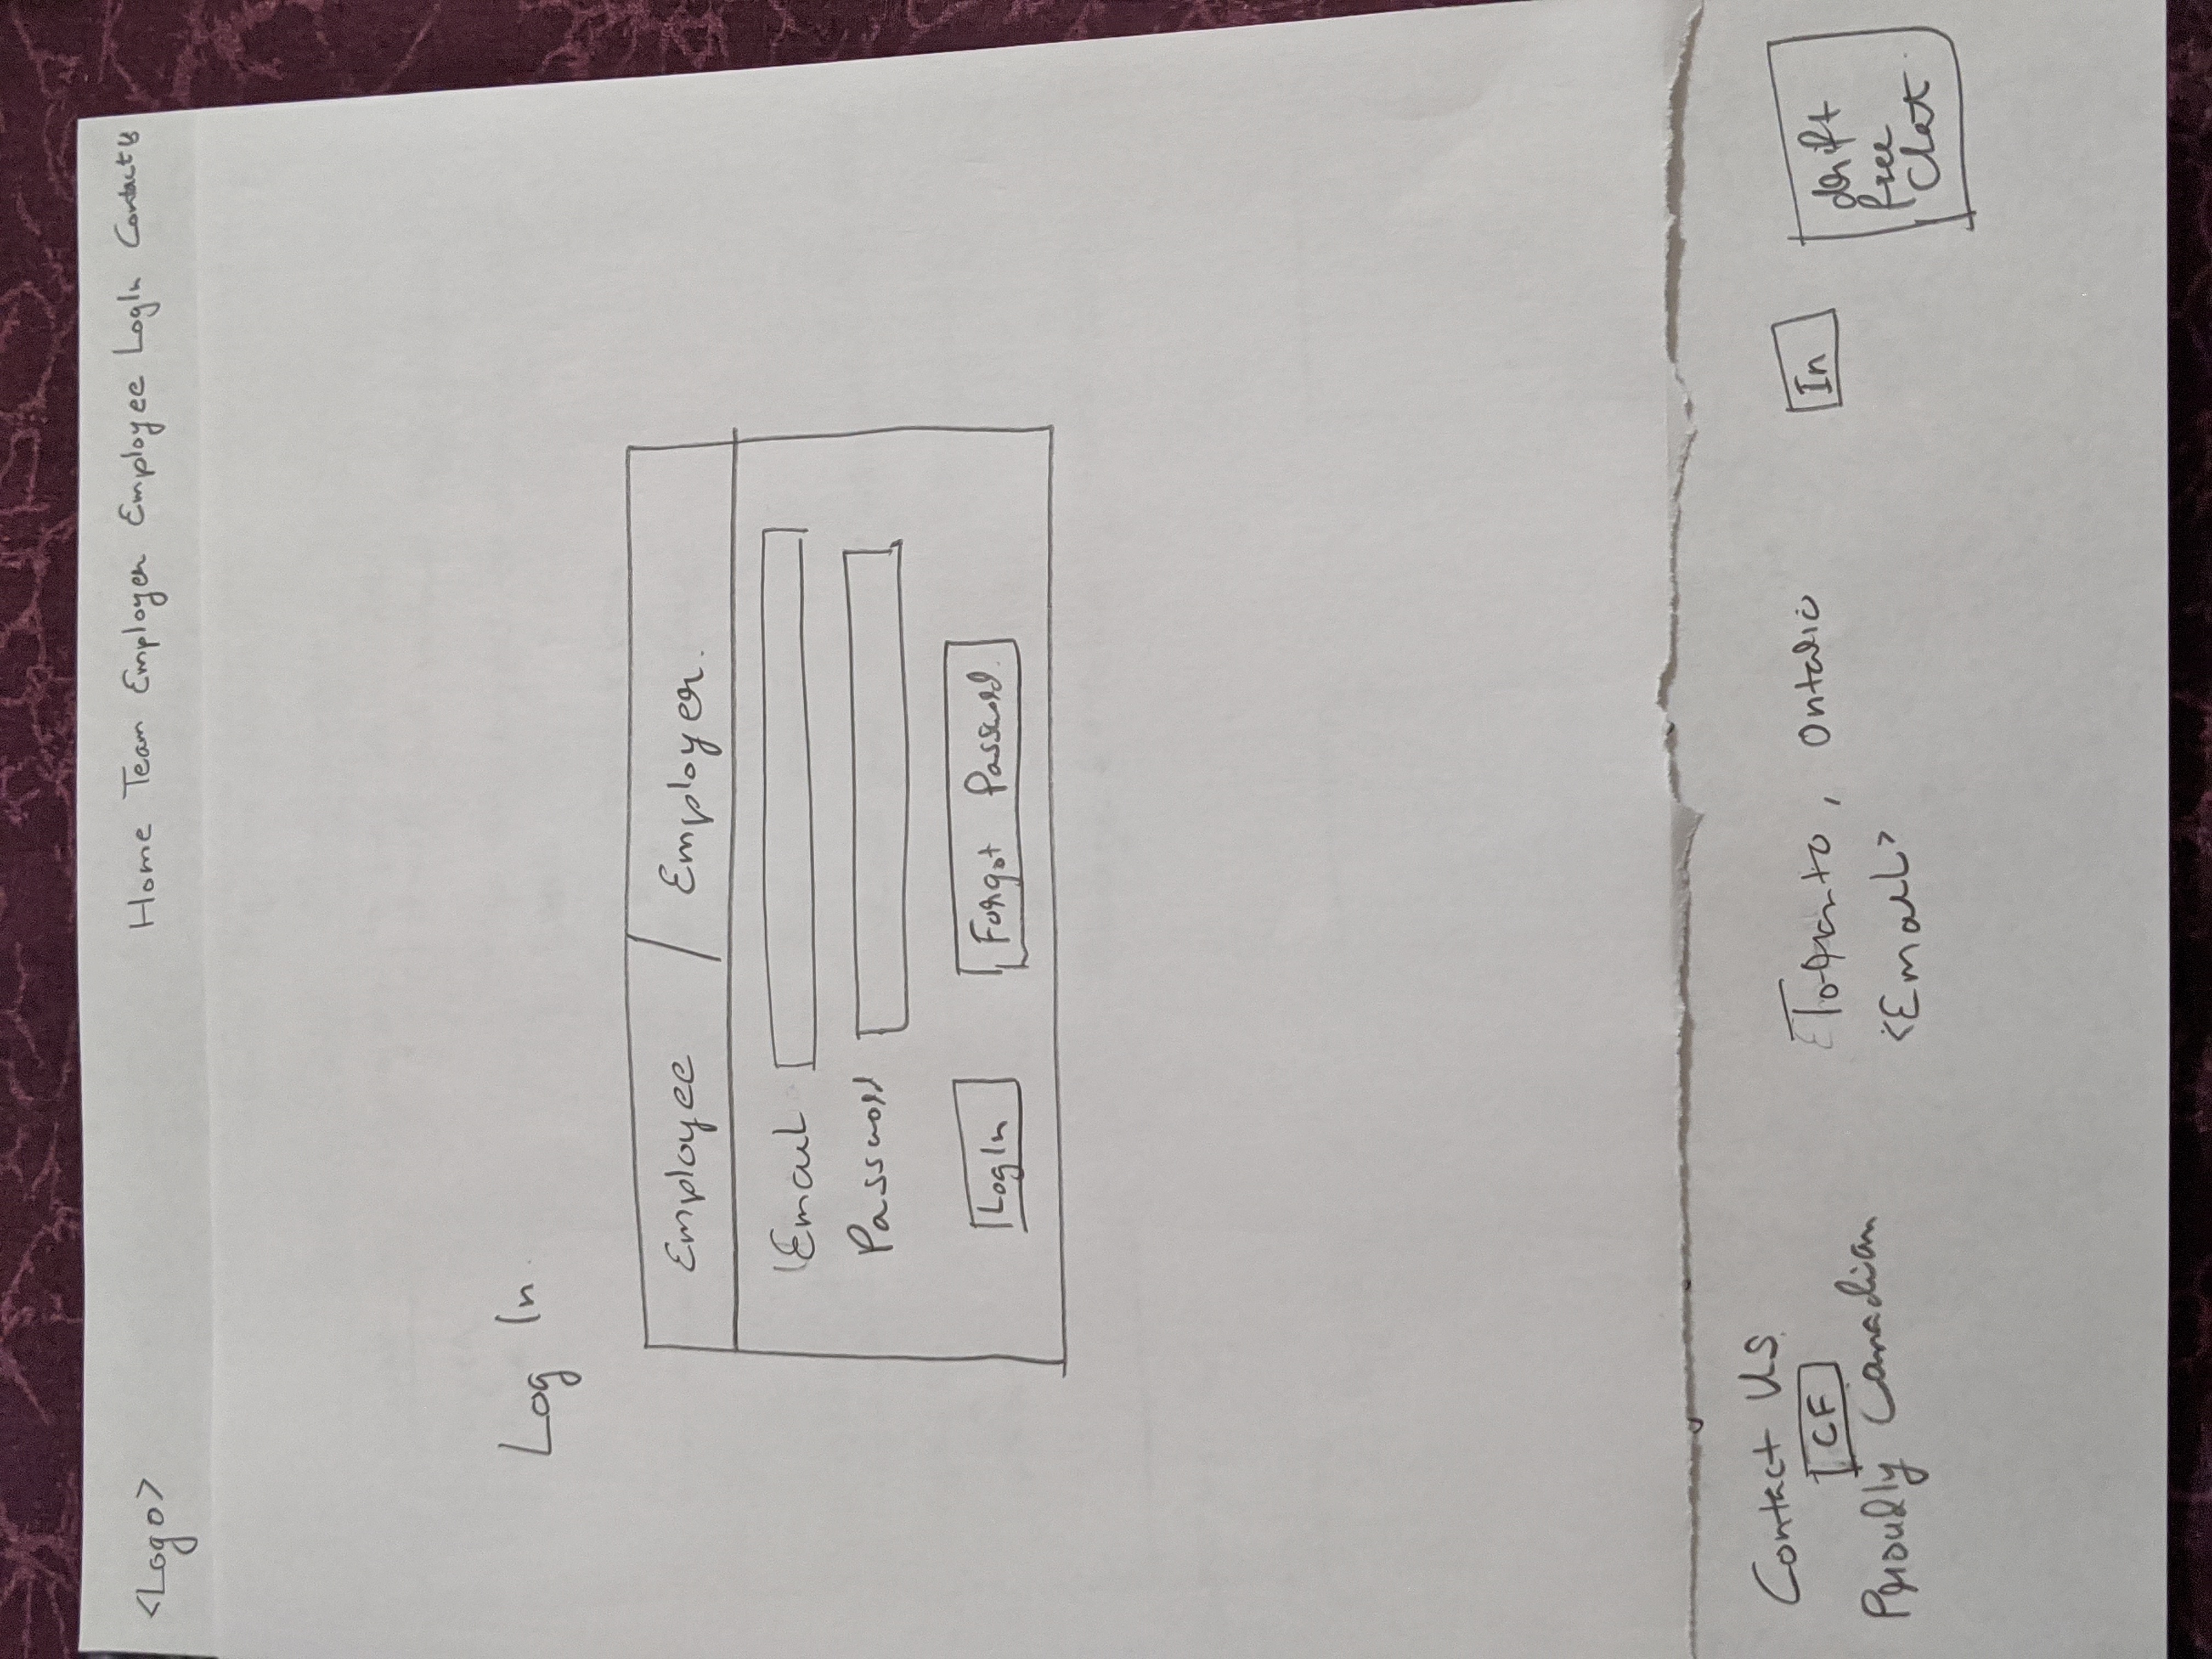 <Logo> Home Team Employer Employee LogIn Contact Us
Log In
Employee Employer.
Email
Password
LogIn Forgot Password.
Contact Us
CF
Proudly Canadian
Toronto, Ontario
<Email>
In
drift
free
Chat